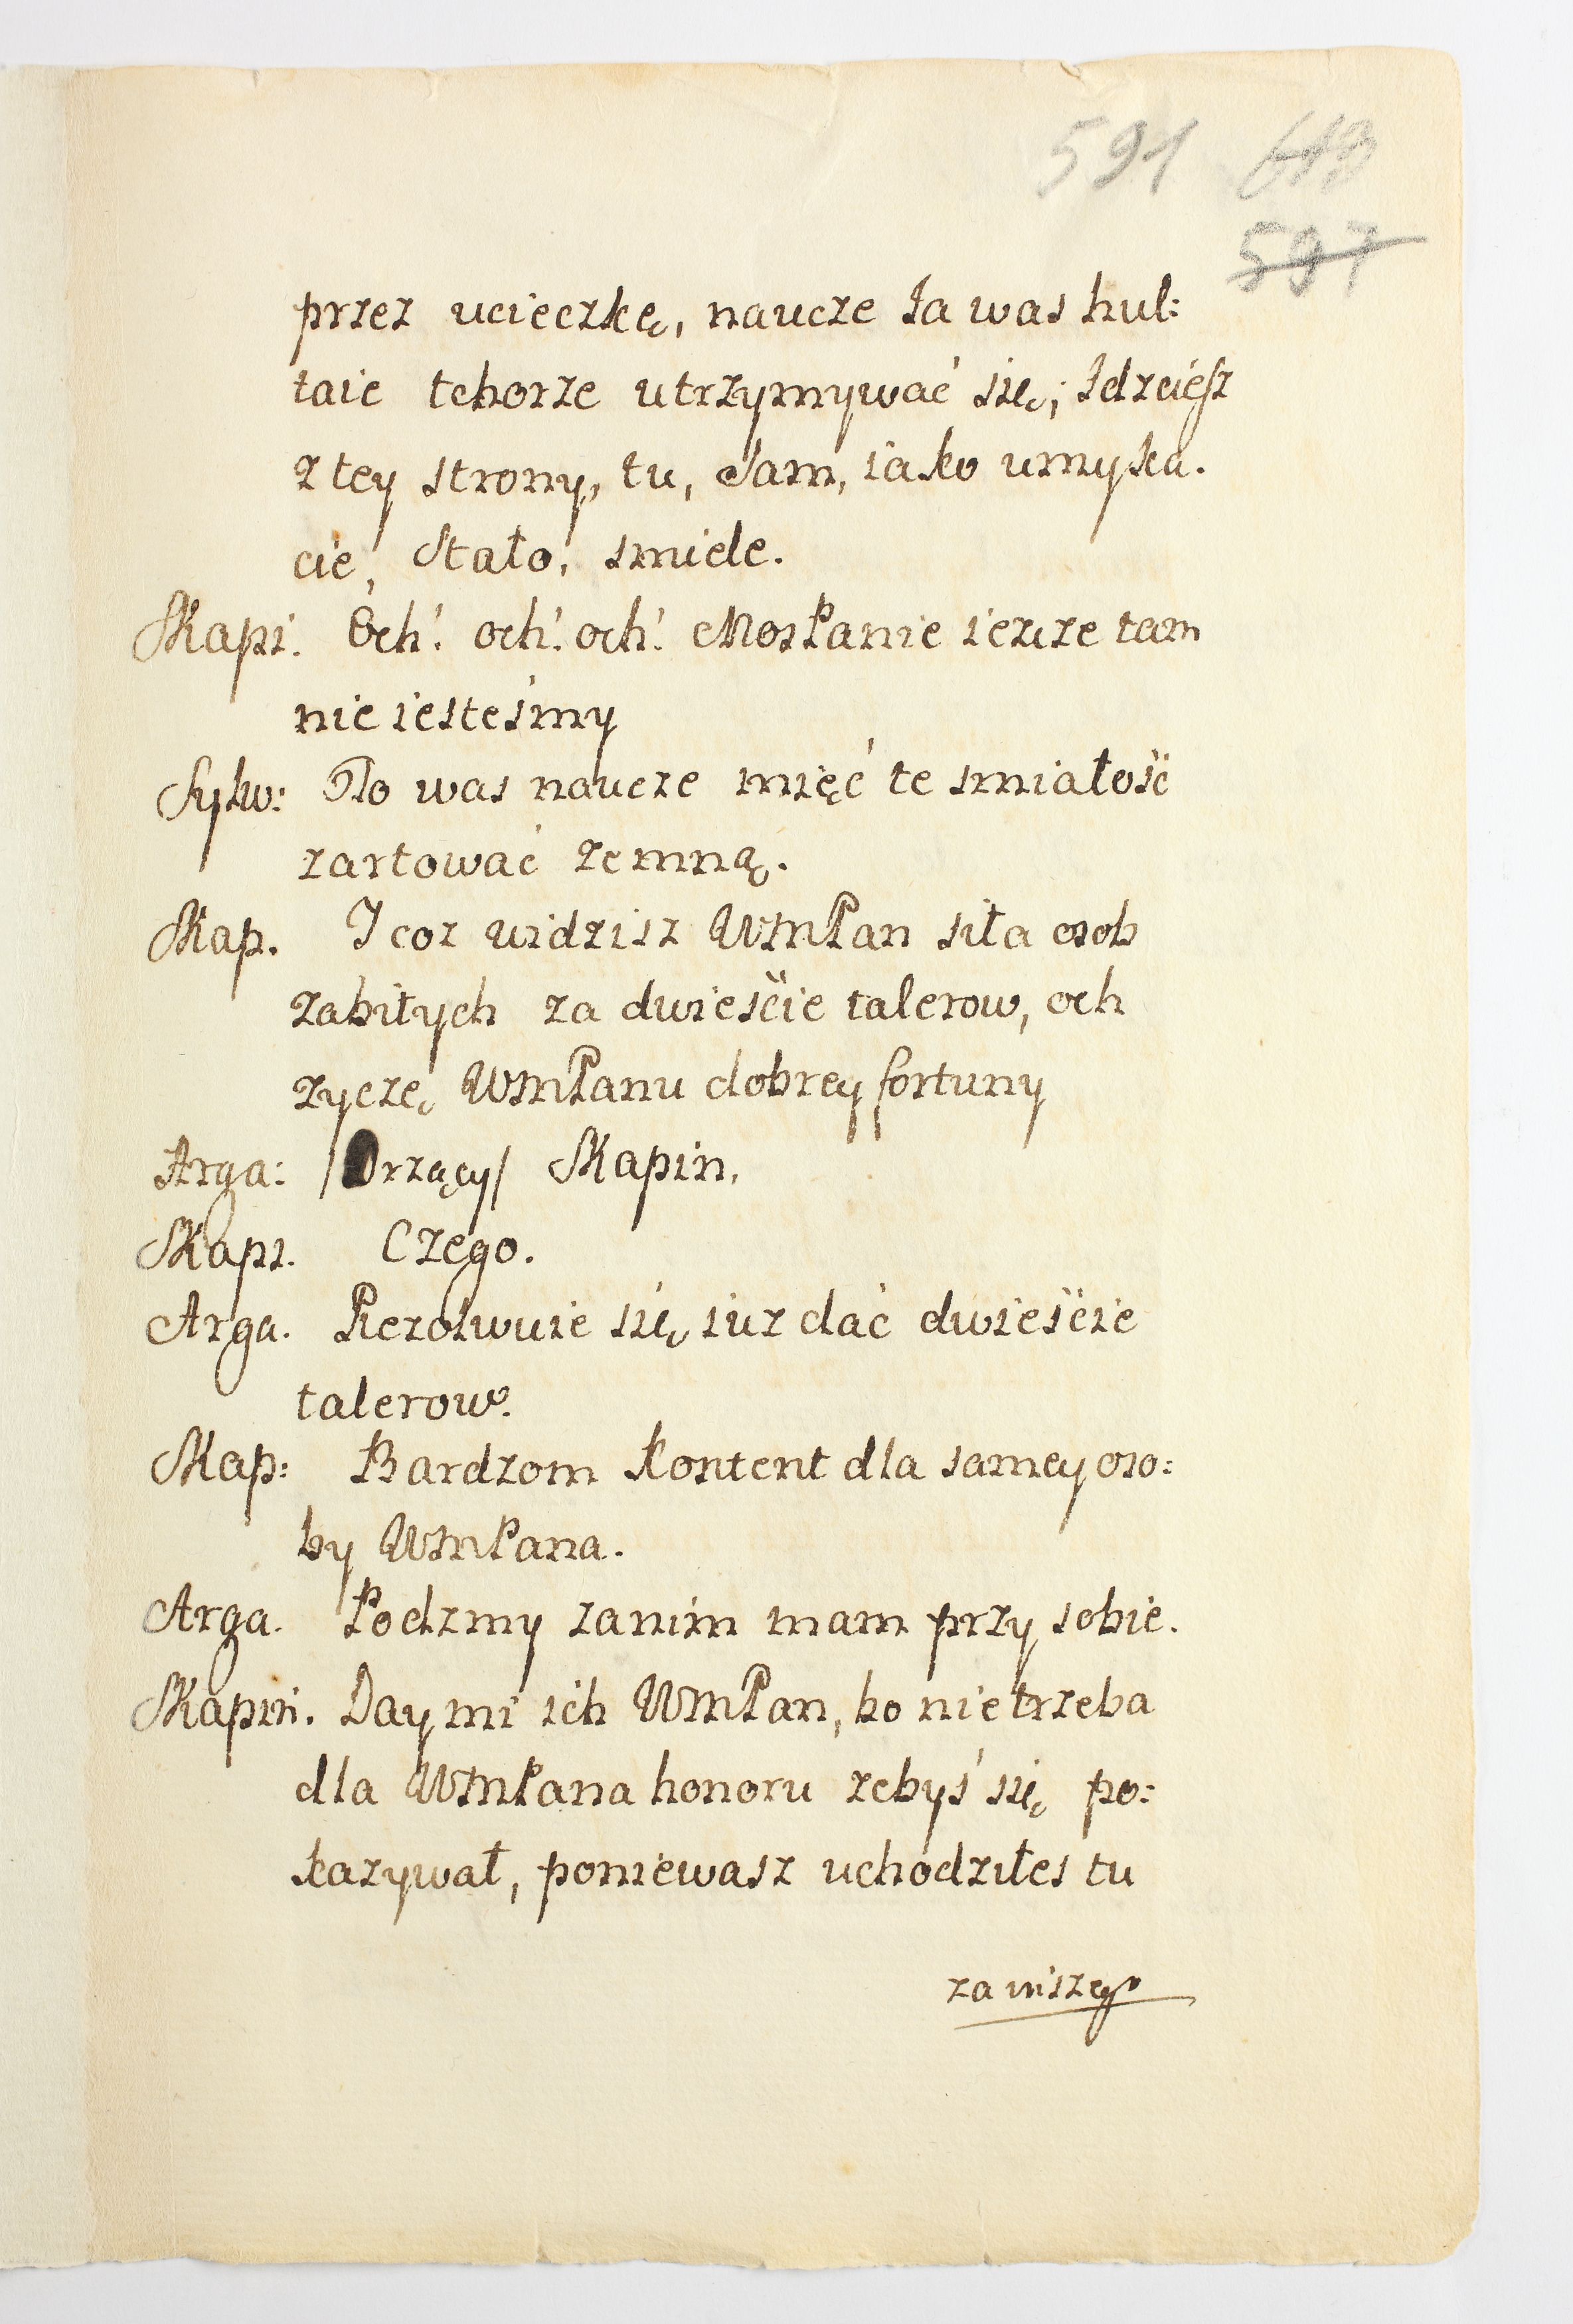 591 613
597
przez ucieczkę, naucze Ja was hul:
taie tchorze utrzymywać się; Idzciesz
z tey strony, tu, Sam, iako umyka.
cie, Stało, smiele.
Skapi. Och! och! och! MosPanie ieszcze tam
nie iesteśmy
Sylw: To was naucze mięć te smiałość
zartować zemną.
Skap. I coz widzisz WMPan siła osob
zabitych za dwieście talerow, och
zyczę WMPanu dobrey fortuny
Arga: /Drzący/ Skapin.
Skapi. Czego.
Arga. Rezolwuie się iuz dać dwieście
talerow.
Skap: Bardzom kontent dla samey oso:
by WMPana.
Arga. Podzmy zanim mam przy sobie.
Skapin. Day mi ich WMPan, bo nie trzeba
dla WMPana honoru zebyś się po:
kazywał, poniewasz uchodziłes tu
za inszego